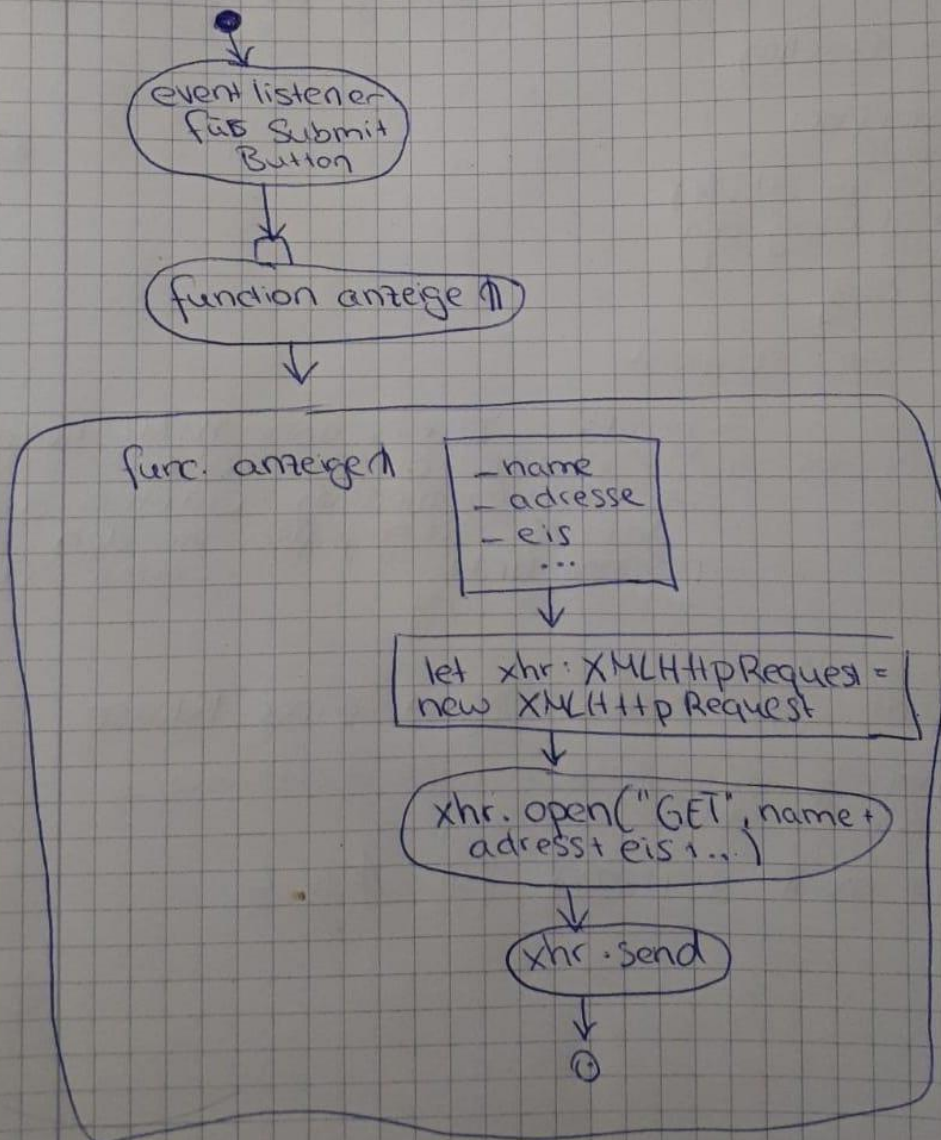 event listener
für Submit
Button
function anzeige ()
func. anzeige ()
- name
- adresse
- eis
...
let xhr: XMLHttpRequest =
new XMLHttpRequest
xhr.open("GET", name +
adress+ eis + ...)
xhr.send